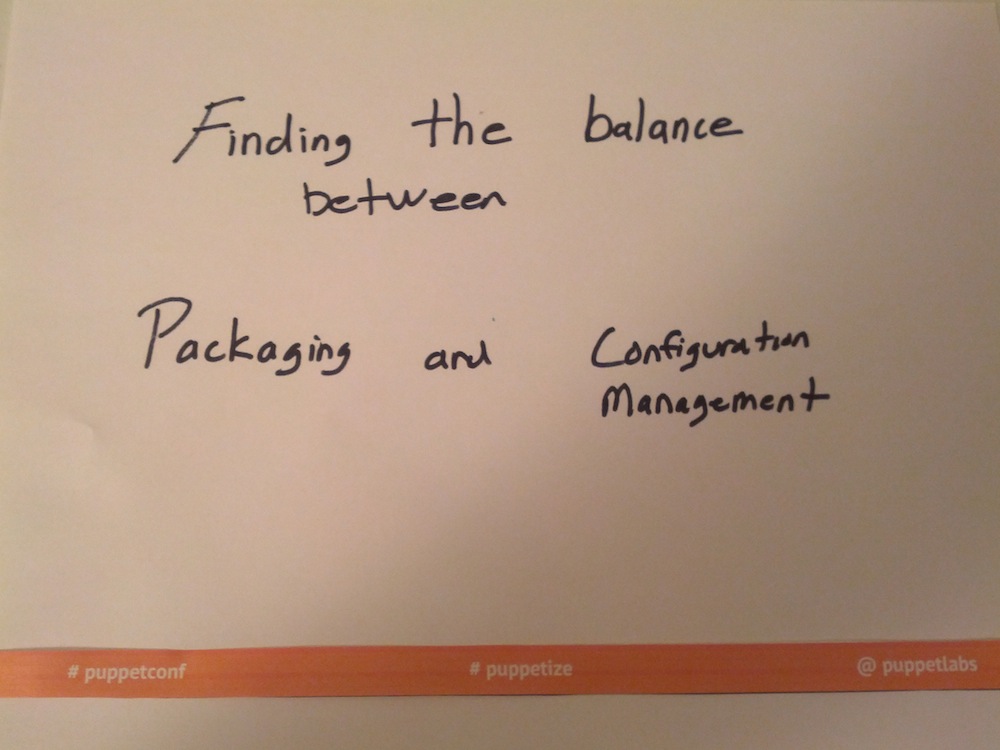 Finding the balance
between
Packaging and Configuration
Management
# puppetconf # puppetize @ puppetlabs